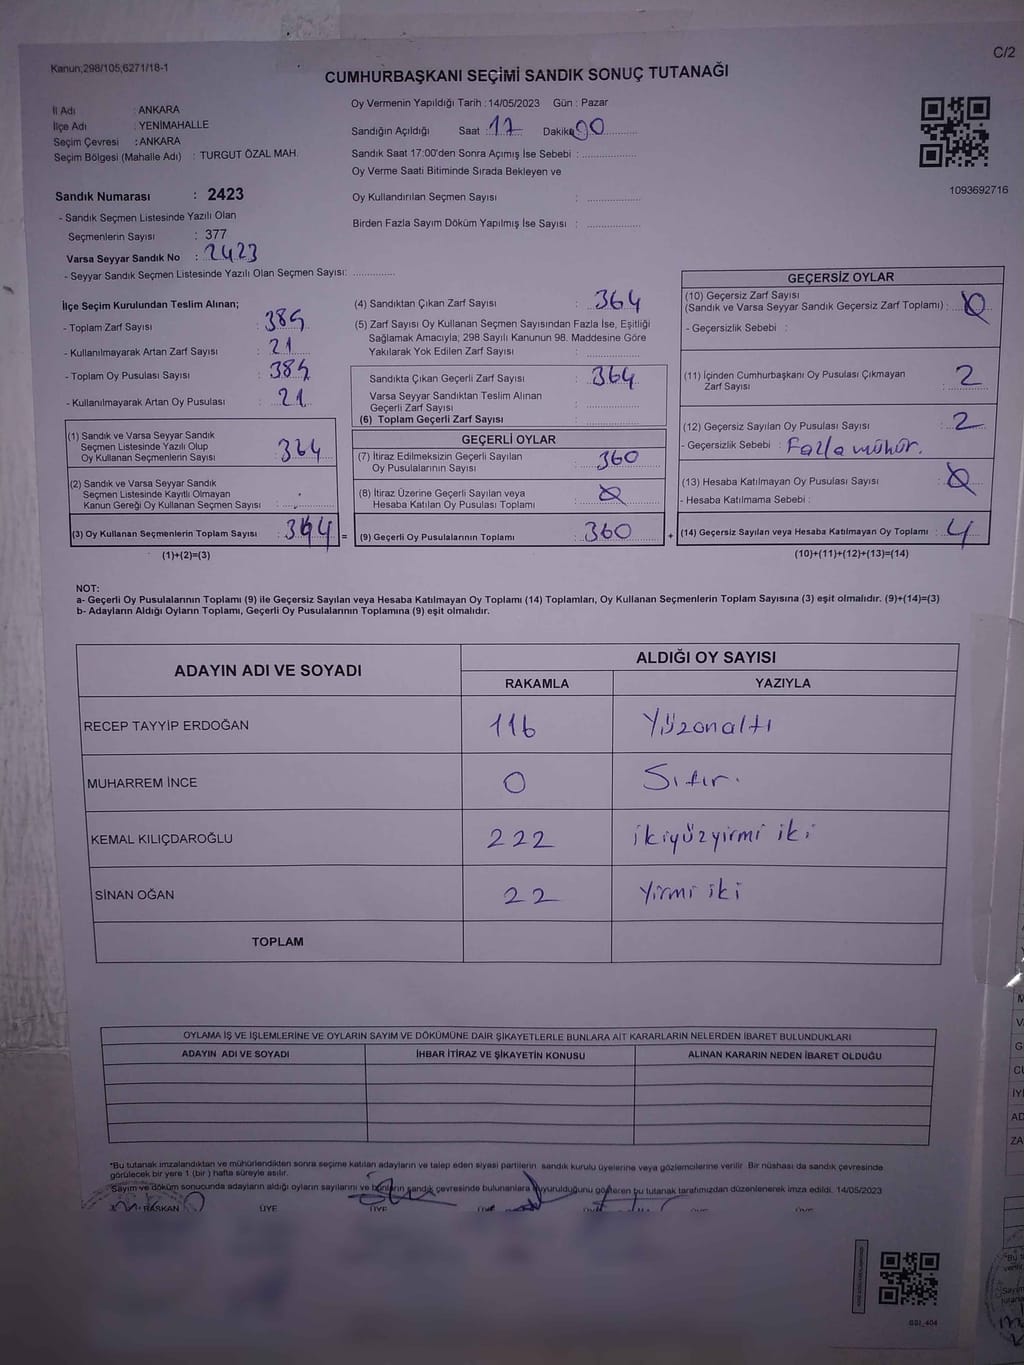 C/2
Kanun;298/105,6271/18-1
CUMHURBAŞKANI SEÇİMİ SANDIK SONUÇ TUTANAĞI
İl Adı : ANKARA
İlçe Adı : YENİMAHALLE
Seçim Çevresi : ANKARA
Seçim Bölgesi (Mahalle Adı) : TURGUT ÖZAL MAH.
Oy Vermenin Yapıldığı Tarih : 14/05/2023 Gün : Pazar
Sandığın Açıldığı Saat : 17 Dakika 00
Sandık Saat 17:00'den Sonra Açımış İse Sebebi :
Oy Verme Saati Bitiminde Sırada Bekleyen ve
Oy Kullandırılan Seçmen Sayısı :
Birden Fazla Sayım Döküm Yapılmış İse Sayısı :
1093692716
Sandık Numarası : 2423
- Sandık Seçmen Listesinde Yazılı Olan
Seçmenlerin Sayısı : 377
Varsa Seyyar Sandık No : 2423
- Seyyar Sandık Seçmen Listesinde Yazılı Olan Seçmen Sayısı:
İlçe Seçim Kurulundan Teslim Alınan;
- Toplam Zarf Sayısı : 385
- Kullanılmayarak Artan Zarf Sayısı : 21
- Toplam Oy Pusulası Sayısı : 385
- Kullanılmayarak Artan Oy Pusulası : 21
(1) Sandık ve Varsa Seyyar Sandık
Seçmen Listesinde Yazılı Olup
Oy Kullanan Seçmenlerin Sayısı : 364
(2) Sandık ve Varsa Seyyar Sandık
Seçmen Listesinde Kayıtlı Olmayan
Kanun Gereği Oy Kullanan Seçmen Sayısı :
(3) Oy Kullanan Seçmenlerin Toplam Sayısı : 364 =
(1)+(2)=(3)
(4) Sandıktan Çıkan Zarf Sayısı : 364
(5) Zarf Sayısı Oy Kullanan Seçmen Sayısından Fazla İse, Eşitliği
Sağlamak Amacıyla; 298 Sayılı Kanunun 98. Maddesine Göre
Yakılarak Yok Edilen Zarf Sayısı :
Sandıkta Çıkan Geçerli Zarf Sayısı : 364
Varsa Seyyar Sandıktan Teslim Alınan
Geçerli Zarf Sayısı :
(6) Toplam Geçerli Zarf Sayısı :
GEÇERLİ OYLAR
(7) İtiraz Edilmeksizin Geçerli Sayılan
Oy Pusulalarının Sayısı : 360
(8) İtiraz Üzerine Geçerli Sayılan veya
Hesaba Katılan Oy Pusulası Toplamı : 0
(9) Geçerli Oy Pusulalarının Toplamı : 360 +
GEÇERSİZ OYLAR
(10) Geçersiz Zarf Sayısı
(Sandık ve Varsa Seyyar Sandık Geçersiz Zarf Toplamı) : 0
- Geçersizlik Sebebi :
(11) İçinden Cumhurbaşkanı Oy Pusulası Çıkmayan
Zarf Sayısı : 2
(12) Geçersiz Sayılan Oy Pusulası Sayısı : 2
- Geçersizlik Sebebi : Fazla mühür.
(13) Hesaba Katılmayan Oy Pusulası Sayısı : 0
- Hesaba Katılmama Sebebi :
(14) Geçersiz Sayılan veya Hesaba Katılmayan Oy Toplamı : 4
(10)+(11)+(12)+(13)=(14)
NOT:
a- Geçerli Oy Pusulalarının Toplamı (9) ile Geçersiz Sayılan veya Hesaba Katılmayan Oy Toplamı (14) Toplamları, Oy Kullanan Seçmenlerin Toplam Sayısına (3) eşit olmalıdır. (9)+(14)=(3)
b- Adayların Aldığı Oyların Toplamı, Geçerli Oy Pusulalarının Toplamına (9) eşit olmalıdır.
ADAYIN ADI VE SOYADI
ALDIĞI OY SAYISI
RAKAMLA YAZIYLA
RECEP TAYYİP ERDOĞAN 116 Yüzonaltı
MUHARREM İNCE 0 Sıfır.
KEMAL KILIÇDAROĞLU 222 ikiyüzyirmi iki
SİNAN OĞAN 22 Yirmi iki
TOPLAM
OYLAMA İŞ VE İŞLEMLERİNE VE OYLARIN SAYIM VE DÖKÜMÜNE DAİR ŞİKAYETLERLE BUNLARA AİT KARARLARIN NELERDEN İBARET BULUNDUKLARI
ADAYIN ADI VE SOYADI İHBAR İTİRAZ VE ŞİKAYETİN KONUSU ALINAN KARARIN NEDEN İBARET OLDUĞU
*Bu tutanak imzalandıktan ve mühürlendikten sonra seçime katılan adayların ve talep eden siyasi partilerin sandık kurulu üyelerine veya gözlemcilerine verilir. Bir nüshası da sandık çevresinde
görülecek bir yere 1 (bir) hafta süreyle asılır.
Sayım ve döküm sonucunda adayların aldığı oyların sayılarını ve bunların sandık çevresinde bulunanlara duyurulduğunu gösteren bu tutanak tarafımızdan düzenlenerek imza edildi. 14/05/2023
BAŞKAN ÜYE ÜYE ÜYE ÜYE ÜYE ÜYE